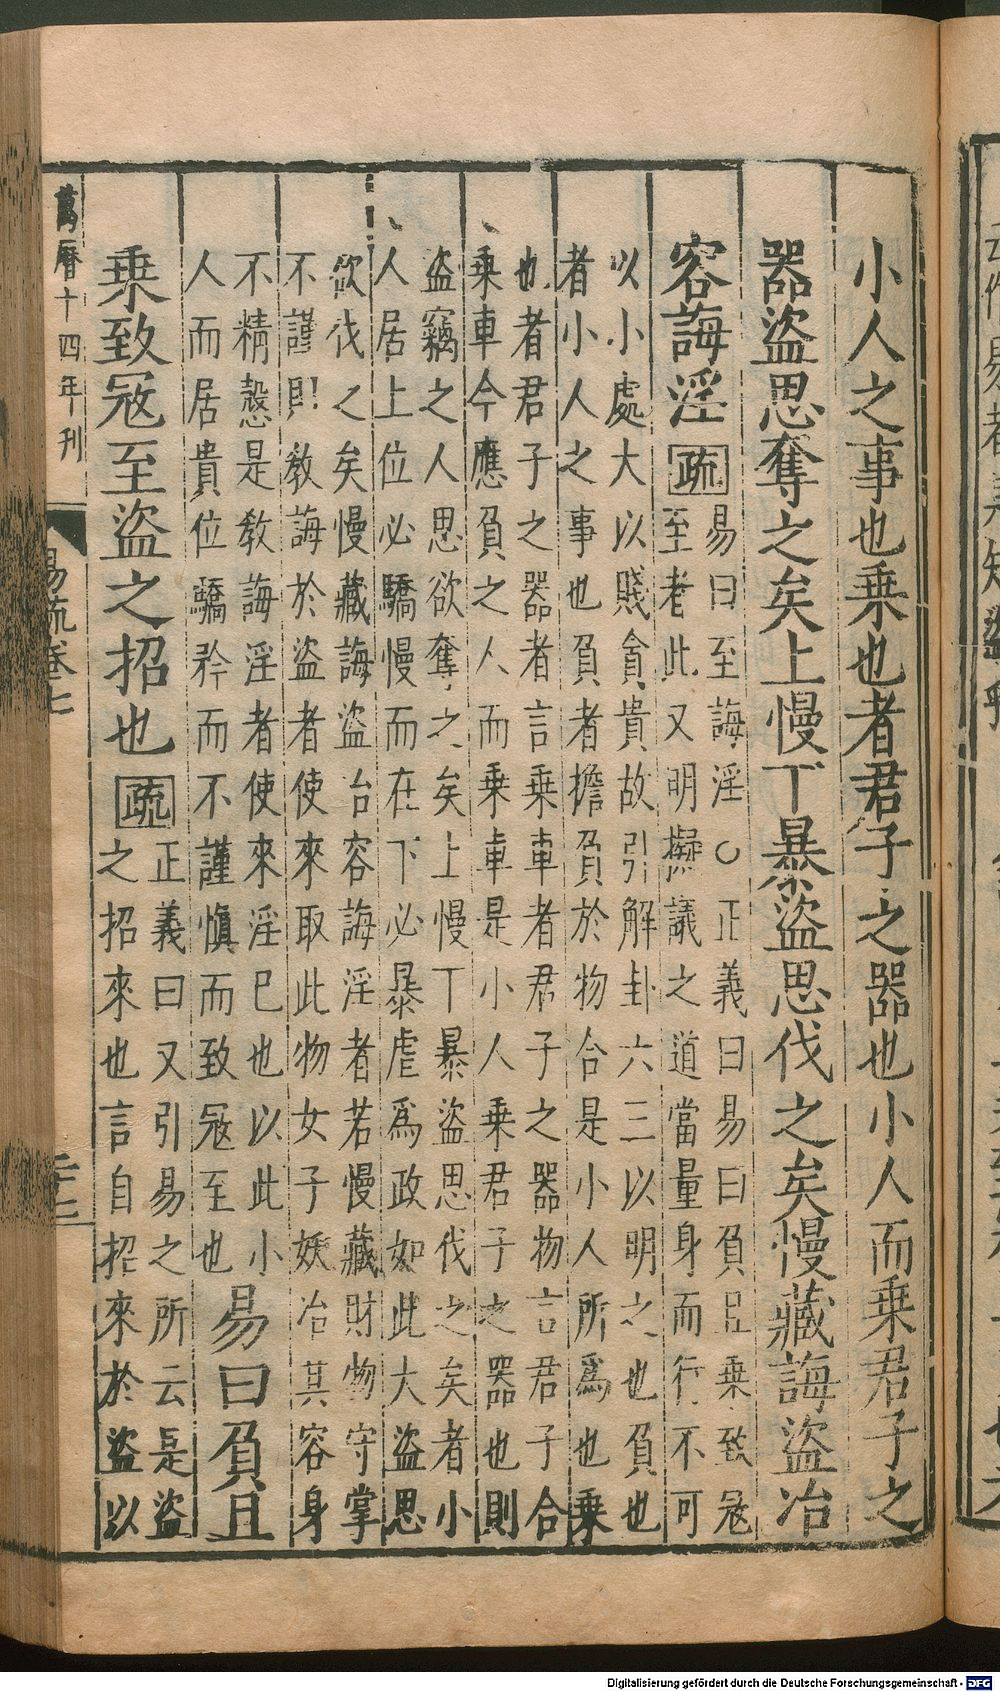 小人之事也乗也者君子之器也小人而乗君子之
器盜思奪之矣上慢丅暴盜思伐之矣慢藏誨盜冶
容誨淫疏
易曰至誨淫○正義曰易曰負且乗致冦
至者此又明擬議之道當量身而行不可
以小處大以賤貪貴故引解卦六三以明之也負也
者小人之事也負者擔負於物合是小人所爲也乗
也者君子之器者言乗車者君子之器物言君子合
乗車今應負之人而乗車是小人乗君子之器也則
盜竊之人思欲奪之矣上慢丅暴盜思伐之矣者小
人居上位必驕慢而在下必暴虐爲政如此大盜思
欲伐之矣慢藏誨盜台容誨淫者若慢藏財物守掌
不謹則教誨於盜者使來取此物女子妖冶其容身
不精慤是教誨淫者使來淫已也以此小
人而居貴位驕矜而不謹愼而致冦至也
易曰負且
乗致冦至盜之招也疏
正義曰又引易之所云是盜
之招來也言自招來於盜以
萬曆十四年刊
易疏卷七
二十七
Digitalisierung gefördert durch die Deutsche Forschungsgemeinschaft - DFG